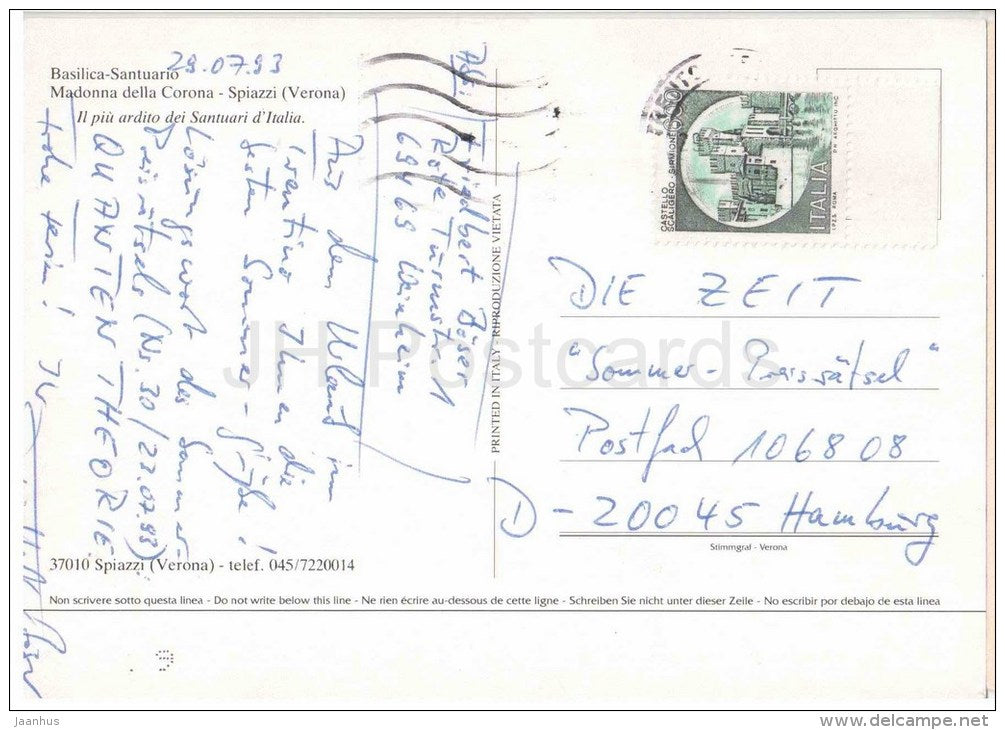 29.07.93
Basilica-Santuario
Madonna della Corona - Spiazzi (Verona)
Il più ardito dei Santuari d'Italia.
Abs.
Friedbert Böser
Rote Turmstr. 1
69469 Weinheim
Aus dem Urlaub im
Trentino Ihnen die
besten Sommer-Grüße!
Lösungswort des Sommer-
Preisrätsels (Nr. 30/22.07.93):
QUANTENTHEORIE
Frohe Ferien! Ihr
37010 Spiazzi (Verona) - telef. 045/7220014
PRINTED IN ITALY - RIPRODUZIONE VIETATA
CASTELLO
SCALIGERO SIRMIONE
ITALIA
I.P.Z.S. ROMA
DIE ZEIT
"Sommer-Preisrätsel"
Postfach 106808
D-20045 Hamburg
Stimmgraf - Verona
Non scrivere sotto questa linea - Do not write below this line - Ne rien écrire au-dessous de cette ligne - Schreiben Sie nicht unter dieser Zeile - No escribir por debajo de esta linea
JH Postcards
jaanhus
www.delcampe.net